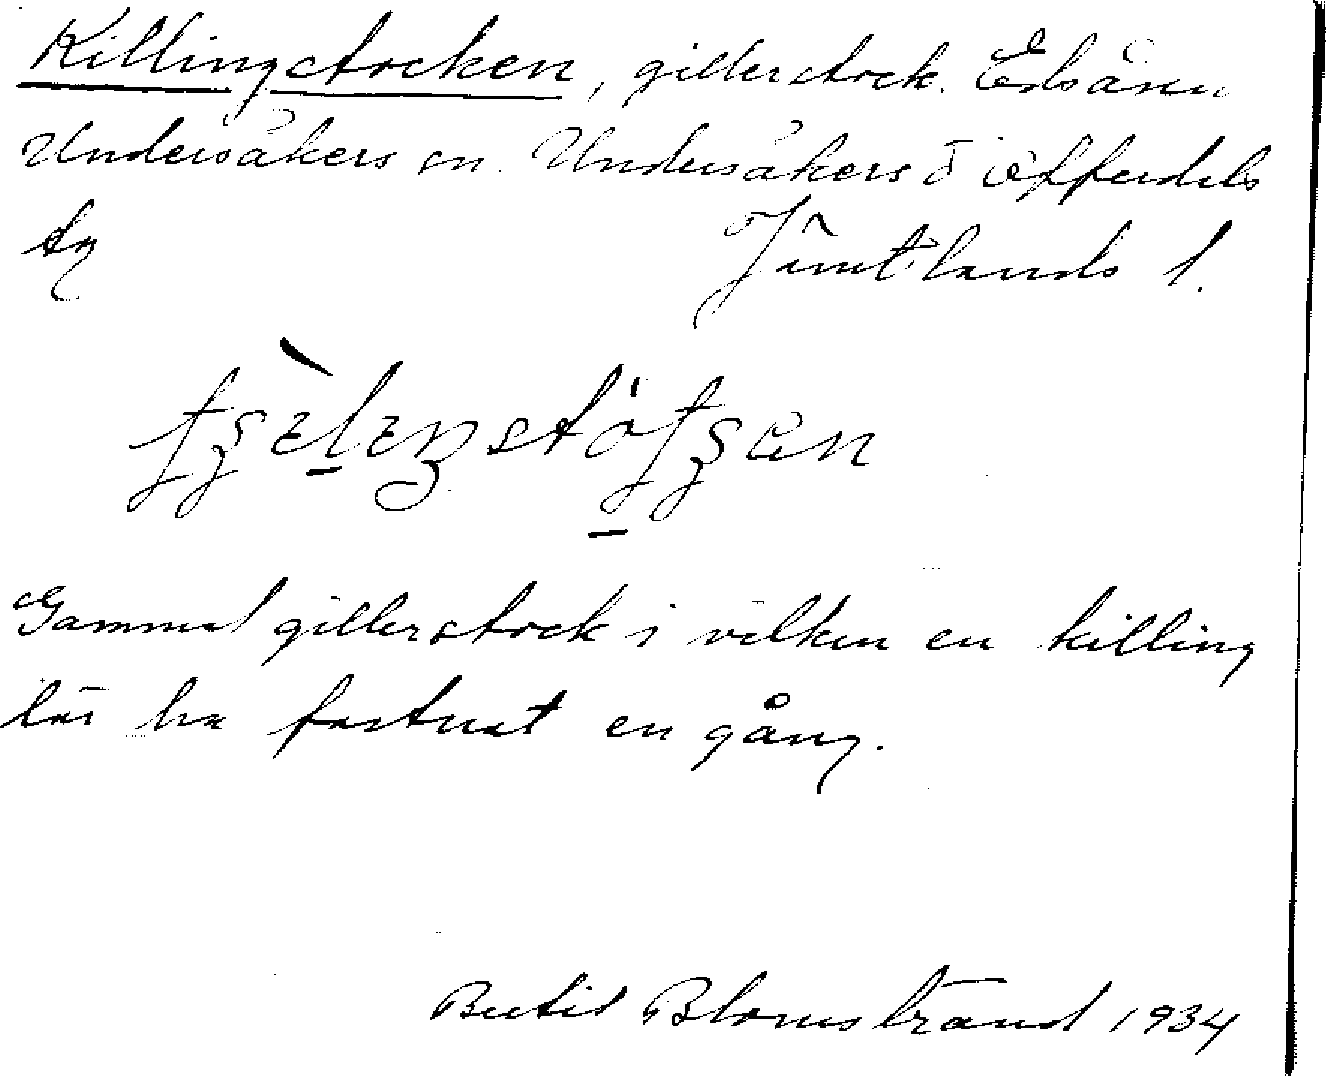 Killingstocken, gillerstock. Edsåsen
Undersåkers sn. Undersåkers o Offerdals
tg
Jämtlands l.
Gammal gillerstock i vilken en killing
lär ha fastnat en gång.
Bertil Blomstrand 1934